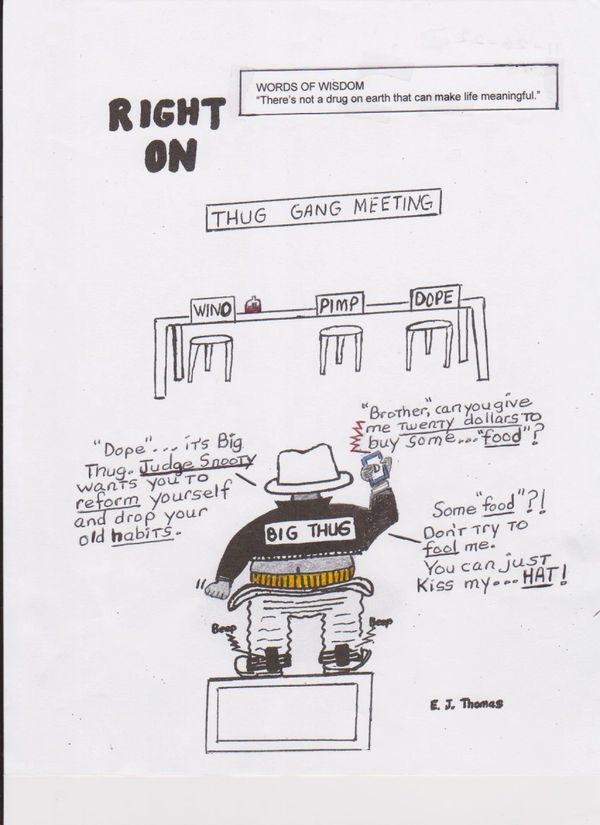 WORDS OF WISDOM
"There's not a drug on earth that can make life meaningful."
RIGHT
ON
THUG GANG MEETING
WINO
PIMP
DOPE
"Dope"... it's Big
Thug. Judge Snooty
wants you to
reform yourself
and drop your
old habits.
"Brother," can you give
me twenty dollars to
buy some..."food"?
BIG THUG
Some "food"?!
Don't try to
fool me.
You can just
Kiss my... HAT!
Beep
Beep
E. J. Thomas